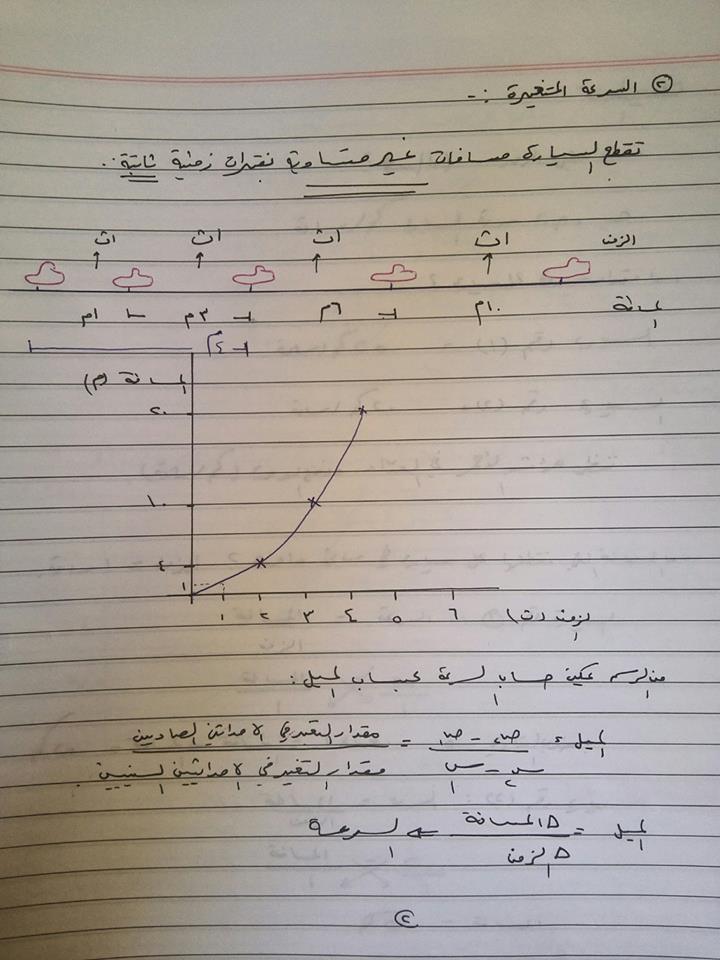 ٢ السرعة المتغيرة :-
تقطع السيارة مسافات غير متساوية بفترات زمنية ثابتة ..
الزمن ١ث ١ث ١ث ١ث
المسافة ١٠م ٦م ٣م ١م
٤م
المسافة (م)
٢٠
١٠
٤
١
١ ٢ ٣ ٤ ٥ ٦ الزمن (ث)
من الرسم يمكن حساب السرعة بحساب الميل :
الميل = ص٢ - ص١ / س٢ - س١ = مقدار التغير في الاحداثين الصاديين / مقدار التغير في الاحداثيين السينيين
الميل = Δ المسافة / Δ الزمن = السرعة
٢